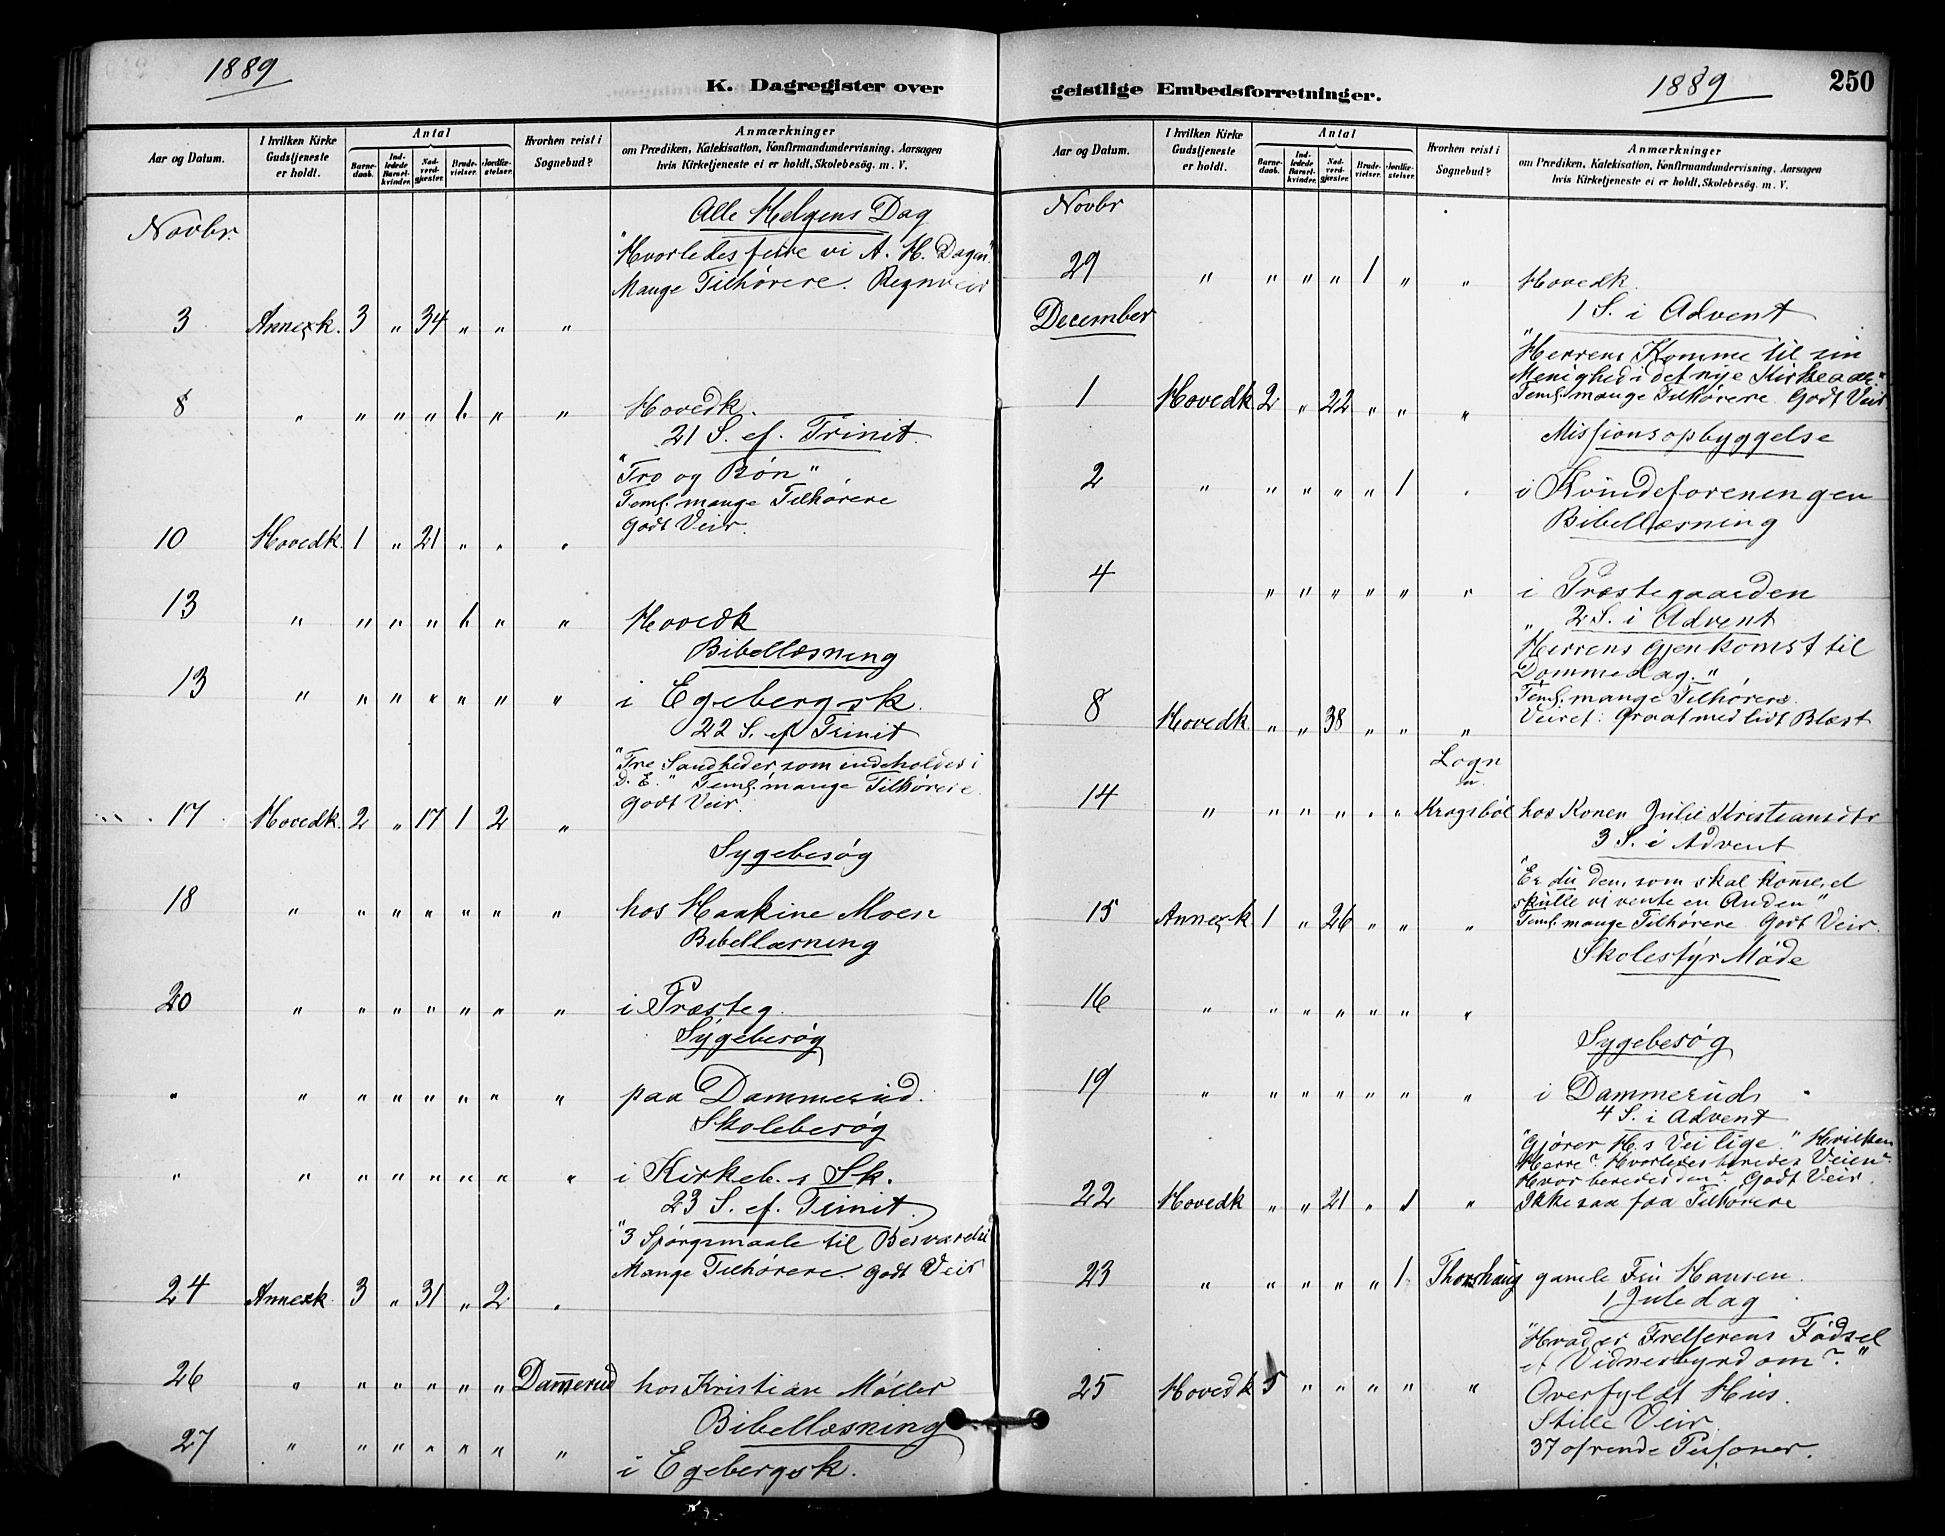 1889
K. Dagregister over
Aar og Datum. I hvilken Kirke Gudstjeneste er holdt. Antal Barnedaab. Indledede Barselkvinder. Nadverdgjester. Brudevielser. Jordfæstelser. Hvorhen reist i Sognebud? Anmærkninger om Prædiken, Katekisation, Konfirmandundervisning, Aarsagen hvis Kirketjeneste ei er holdt, Skolebesøg. m. V.
Novbr. Alle Helgens Dag
"Hvorledes feire vi A. H. Dagen"
Mange Tilhørere. Regnveir
3 Annexk. 3 " 34 " " "
8 " " " " 1 " " Hovedk.
21 S. ef. Trinit.
"Tro og Bøn"
Teml. mange Tilhørere
Godt Veir.
10 Hovedk. 1 " 21 " " "
13 " " " " 1 " " Hovedk
Bibellæsning
13 " " " " " " " i Egebergsk.
22 S. ef Trinit
"Tre Sandheder som indeholdes i
D. E." Teml. mange Tilhørere.
Godt Veir.
17 Hovedk. 2 " 17 1 2 "
Sygebesøg
18 " " " " " " " hos Haakine Moen
Bibellæsning
20 " " " " " " " i Præsteg.
Sygebesøg
" " " " " " " " paa Dammerud.
Skolebesøg
" " " " " " " " i Kirkeb. s Sk.
23 S. ef. Trinit.
"3 Spørgsmaale til Besvarelse
Mange Tilhørere. Godt Veir
24 Annexk. 3 " 31 " 2 "
26 " " " " " " Dam̅erud hos Kristian Møller
Bibellæsning
27 " " " " " " " i Egebergsk.
geistlige Embedsforretninger.
1889
250
Aar og Datum. I hvilken Kirke Gudstjeneste er holdt. Antal Barnedaab. Indledede Barselkvinder. Nadverdgjester. Brudevielser. Jordfæstelser. Hvorhen reist i Sognebud? Anmærkninger om Prædiken, Katekisation, Konfirmandundervisning, Aarsagen hvis Kirketjeneste ei er holdt, Skolebesøg. m. V.
Novbr
29 " " " " 1 " " Hovedk.
December 1 S. i Advent
"Herrens Komme til sin
Menighed i det nye Kirkeaar."
Teml. mange Tilhørere. Godt Veir
1 Hovedk 2 " 22 " " "
Missionsopbyggelse
2 " " " " " 1 " i Kvindeforeningen
Bibellæsning
4 " " " " " " i Præstegaarden
2 S. i Advent
"Herrens Gjenkomst til
Dommedag."
Teml. mange Tilhørere.
Veiret: Graat med lidt Blæst
8 Hovedk. " " 38 " " "
14 " " " " " " Logn u. Kragsbøl hos Konen Julie Kristiansdtr
3 S. i Advent
"Er du den, som skal kom̅e, el
skulle vi vente en Anden"
Teml. mange Tilhørere. Godt Veir.
15 Annexk 1 " 26 " " "
Skolestyr Møde
16 " " " " " " "
Sygebesøg
19 " " " " " " " i Dammerud
4 S. i Advent
"Gjører H.s Vei lige." Hvilken
Herre? Hvorledes beredes Veien?
Hvor beredes den? Godt Veir.
22 Hovedk " " 21 " 1 " Ikke saa faa Tilhørere
23 " " " " " 1 Thorshaug gamle Fru Hansen.
1 Juledag
"Hvad er Frelserens Fødsel
et Vidnesbyrd om?"
25 Hovedk 5 " " " " " Overfyldt Hus.
Stille Veir
37 ofrende Personer.